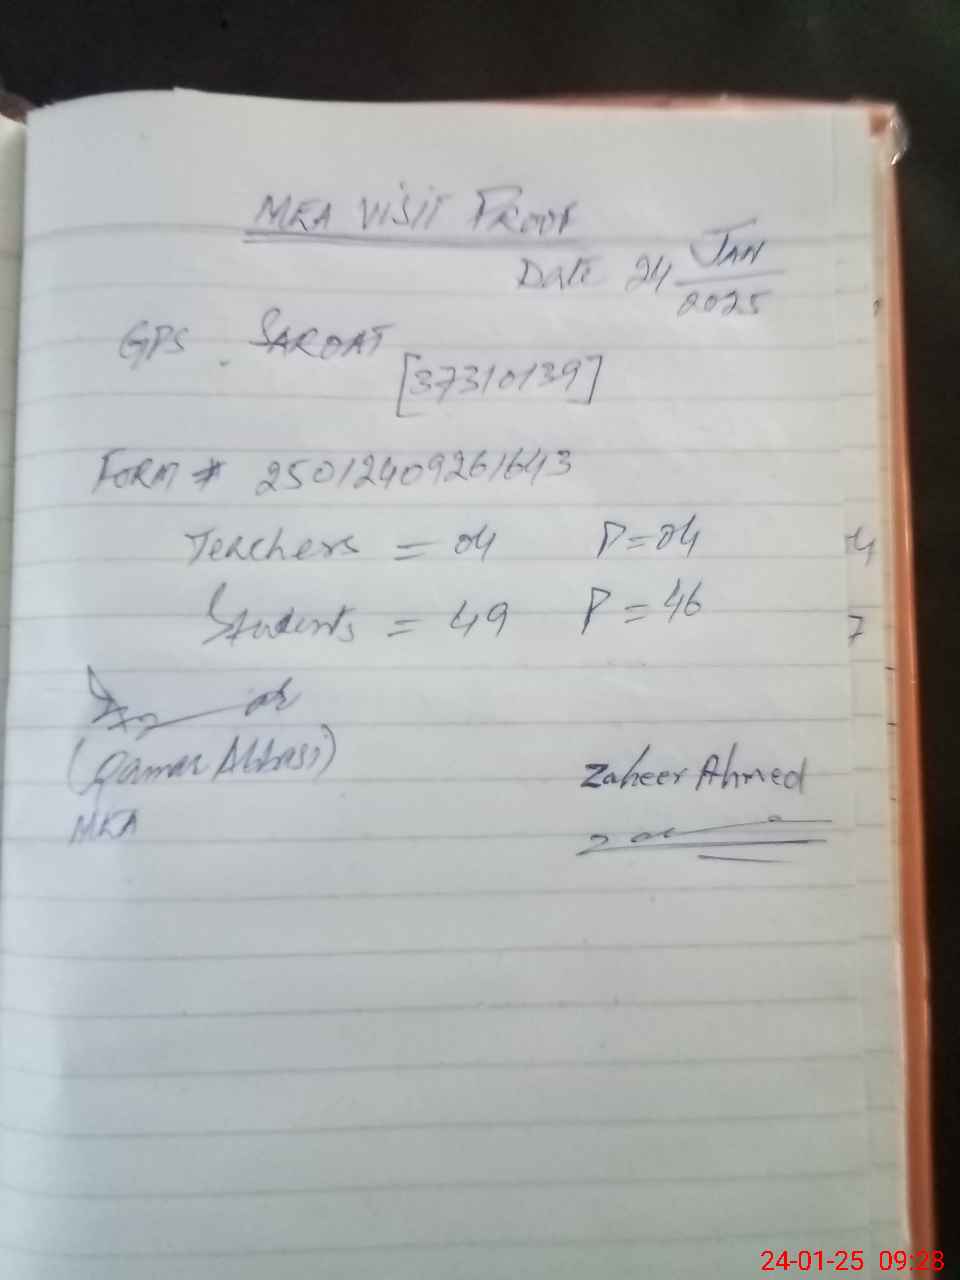 MEA VISIT PROOF
Date 24 JAN 2025
GPS. SAROAT
[37310139]
FORM # 25012409261643
Teachers = 04 P=04
Students = 49 P = 46
(Qamar Abbasi)
MEA
Zaheer Ahmed
4
7
24-01-25 09:28